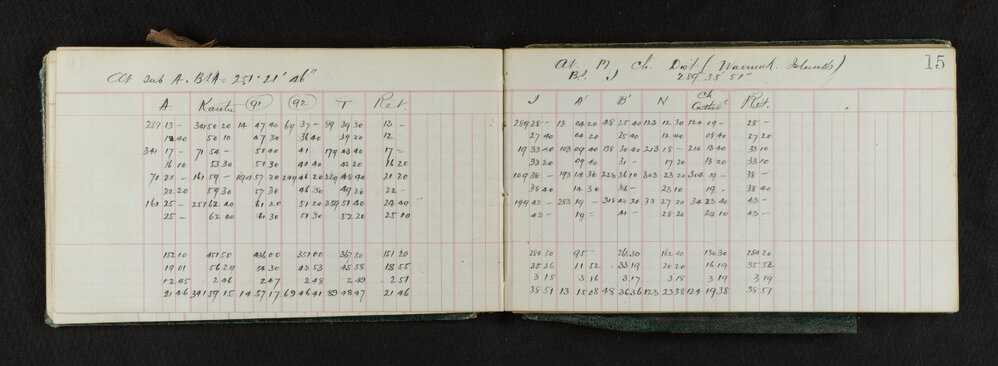 At Sub A. Bld = 251° 21' 46"
A. Kaitu (91) (92) T Ret.
251 13 - 341 50 20 14 47 40 69 37 - 89 39 30 13 -
12 40 50 10 47 30 36 40 39 20 12 -
341 17 - 71 54 - 51 00 41 179 43 40 17 -
16 10 53 30 51 30 40 40 43 20 16 20
71 21 - 161 59 - 194 57 20 249 46 20 269 48 40 21 20
22 20 59 30 57 30 46 30 49 20 22 -
161 25 - 251 62 40 61 20 51 20 359 51 40 24 40
25 - 62 40 61 30 51 30 52 20 25 00
152 10 451 50 436 00 351 00 367 50 151 20
19 01 56 29 54 30 43 53 45 58 18 55
2 45 2 46 2 47 2 48 2 49 2 51
21 46 341 59 15 14 57 17 69 46 41 89 48 47 21 46
15
At. M Ch. Dist (
Bl. J 289° 38' 51"
J A' B' N Ch Ret.
289 28 - 13 04 20 48 25 40 123 12 30 124 09 - 28 -
27 40 04 20 25 40 12 40 08 40 27 20
19 33 40 103 09 40 138 30 40 213 18 - 214 13 40 33 10
33 20 09 40 31 - 17 20 13 20 33 10
109 38 - 193 14 30 228 36 10 303 23 20 304 19 - 38 -
38 40 14 30 36 - 23 10 19 - 38 40
199 43 - 283 19 - 318 40 20 33 27 20 34 23 40 43 -
43 - 19 = 41 - 28 20 24 10 43 -
284 50 95 - 266 30 162 40 130 30 284 20
35 36 11 52 33 19 20 20 16 19 35 32
3 15 3 16 3 17 3 18 3 19 3 19
38 51 13 15 08 48 36 36 123 23 38 124 19 38 38 51